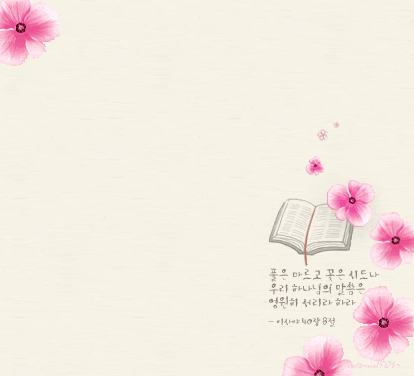 풀은 마르고 꽃은 시드나
우리 하나님의 말씀은
영원히 서리라 하라
- 이사야 40장 8절